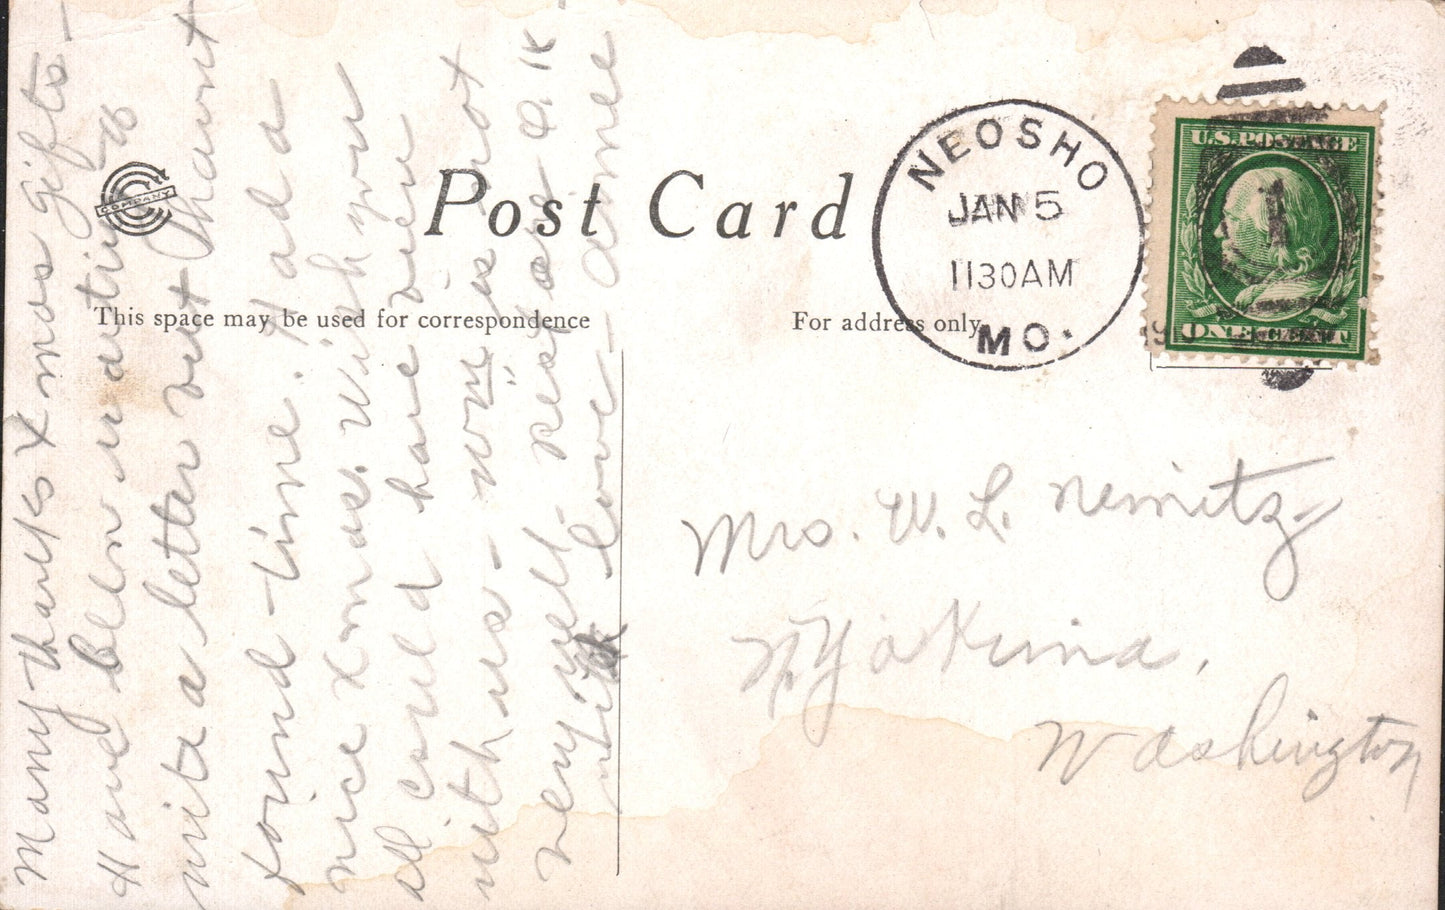 Post Card
This space may be used for correspondence
For address only
COMPANY
NEOSHO
JAN 5
1130AM
MO.
U.S. POSTAGE
ONE CENT
Many thanks Xmas gifts -
Have been waiting to
write a letter but haven't
found time. Had a
nice Xmas. Wish you
all could have been
with us - is not
very well. Rest are O.K.
with love -
Mrs. W. L. Nemitz
N. Yakima,
Washington